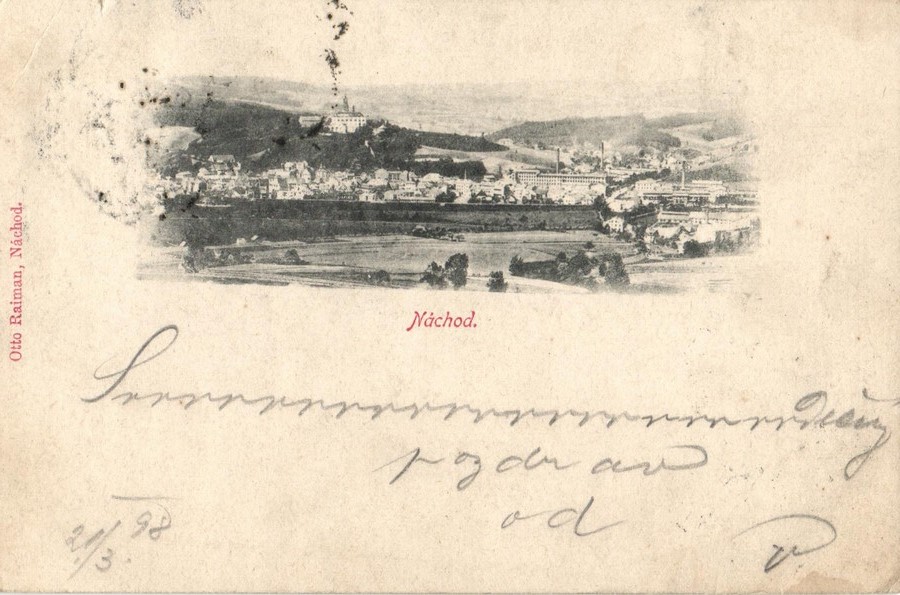 Otto Raiman, Náchod.
Náchod.
Srrrrrrrrrrrrrrrrrrrrrrdečný
pozdrav
od
P.
21/3. 98